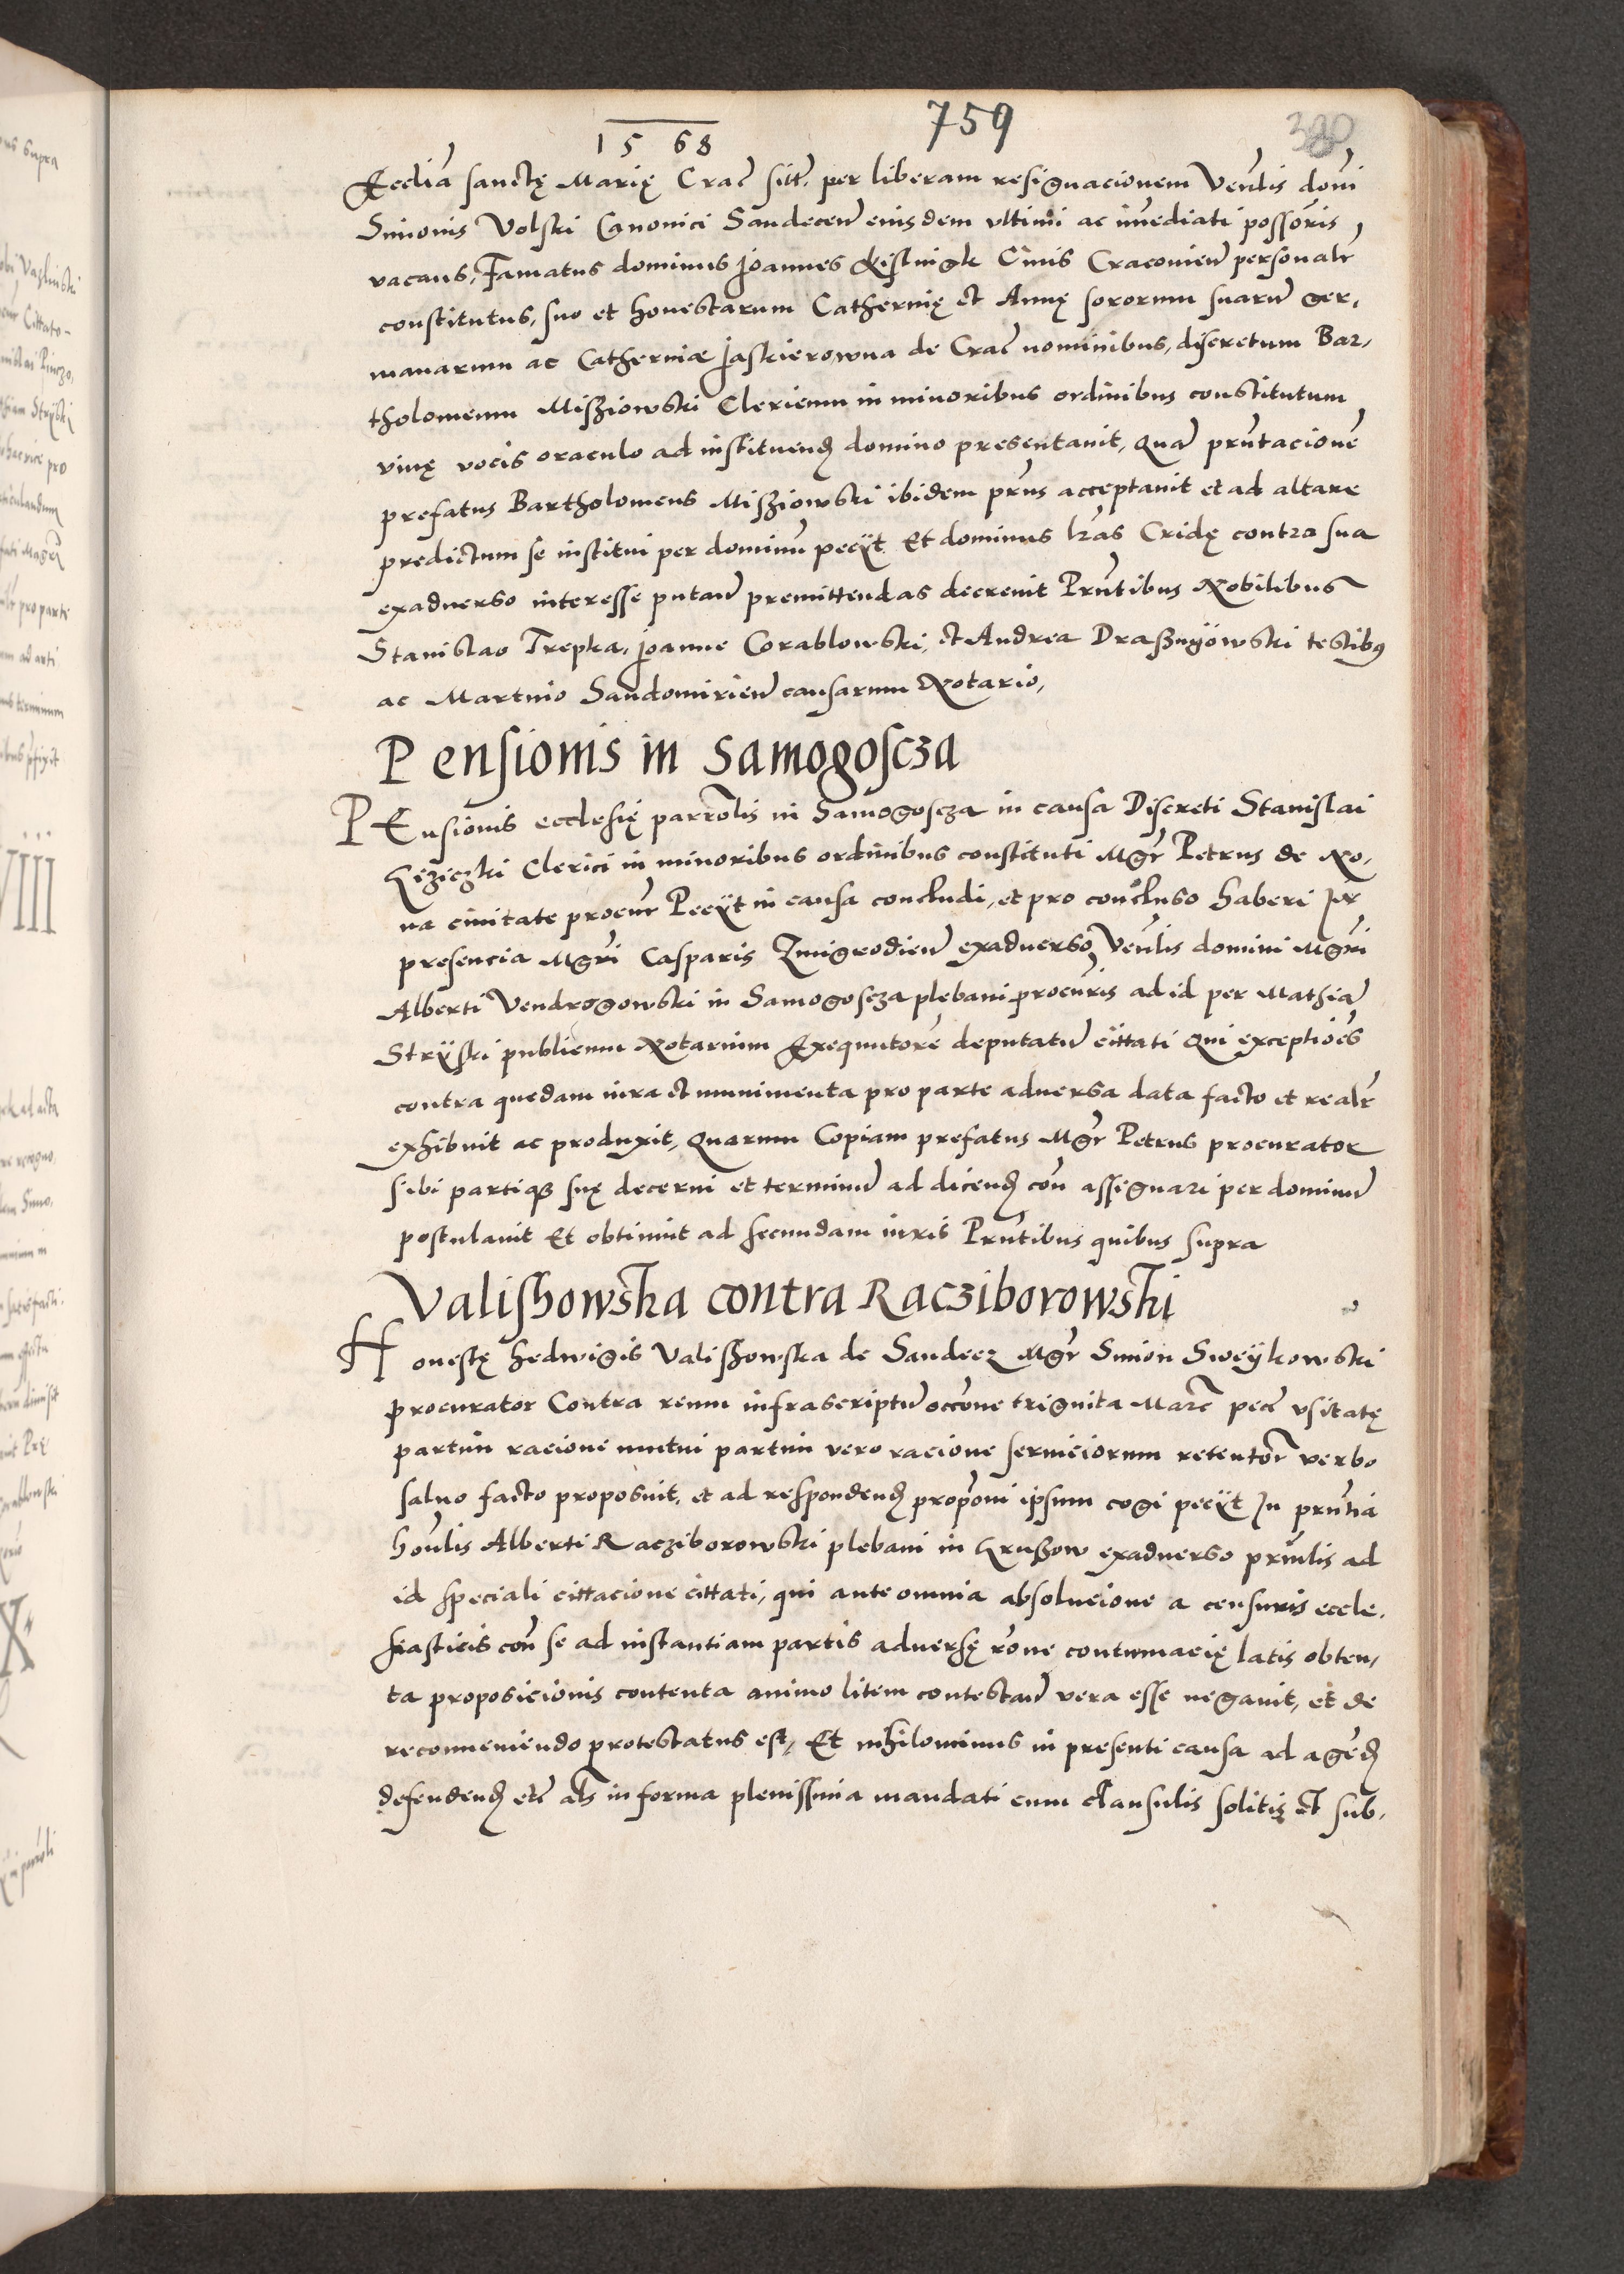 1568 759 380
Eccliã sanctę Marię Crac̃ sitt̃. per liberam resignacionem Veñlis dom̃i
Simonis Volski Canonici Sandeceñ eiusdem vltimi ac im̃ediati possor̃is
vacans, Famatus dominus Joannes Kislingk Ciuis Cracovieñ personalr̃
constitutus, suo et honestarum Catherinę et Annę sororum suarũ ger,
manarum ac Catherinæ Jaskierowna de Crac̃ nominibus, discretum Bar,
tholomeum Misziowski Clericum in minoribus ordinibus constitutum
viuę vocis oraculo ad instituenđ domino presentauit, Quã pr̃ntacionẽ
prefatus Bartholomeus Misziowski ibidem pr̃ns acceptauit et ad altare
predictum se institui per dominũ peÿt Et dominus lr̃as Cridę contra sua
exaduerso interesse putañ premittendas decreuit Pr̃ntibus Nobilibus
Stanislao Trepka, Joanne Corablowski, et Andrea Draßnÿowski testibꝫ
ac Martino Sandomirieñ causarum Notario,
Pensionis in Samogoscza
PEnsionis ecclesię parro͠lis in Samogoscza in causa Discreti Stanislai
clerici in minoribus ordinibus constituti Mgr̃ Petrus de No,
ua ciuitate procur̃ Peciÿt in causa concludi, et pro concluso haberi In
presencia Mgr̃i Casparis Zmigrodieñ exaduerso Veñlis domini Mgr̃i
Alberti Vendrogowski in Samogoscza plebani procur̃is ad id per Mathiã
Strÿski publicum Notarium Exequutorẽ deputatũ cittati Qui exceptiões
contra quedam iura et munimenta pro parte aduersa data facto et realr̃
exhibuit ac produxit, Quarum Copiam prefatus Mgr̃ Petrus procurator
sibi partiqꝫ suę decerni et terminũ ad dicenđ con̄ assignari per dominũ
postulauit Et obtinuit ad secundam iuris Pr̃ntibus quibus supra
Valishowska contra Racziborowski
Honestę Hedwigis Valishowska de Sandecz Mgr̃ Simon Sweÿkowski
procurator Contra reum infrascriptũ occõne triginta Marc̃ pec̃ vsitatę
partim racione mutui partim vero racione seruiciorum retentor̃ verbo
saluo facto proposuit, et ad respondenđ propõni ipsum cogi peciÿt In pr̃ntia
hoñlis Alberti Racziborowski plebani in Hrußow exaduerso prin̄lis ad
id speciali cittacione cittati, qui ante omnia absolucione a censuris eccle,
siasticis con̄ se ad instantiam partis aduersę rõne contumacię latis obten,
ta proposicionis contenta animo litem contestañ vera esse negauit, et de
reconueniendo protestatus est, Et nihilominus in presenti causa ad agenđ
defendenđ etc̃ als̃ in forma plenissima mandati cum clausulis solitis et sub,